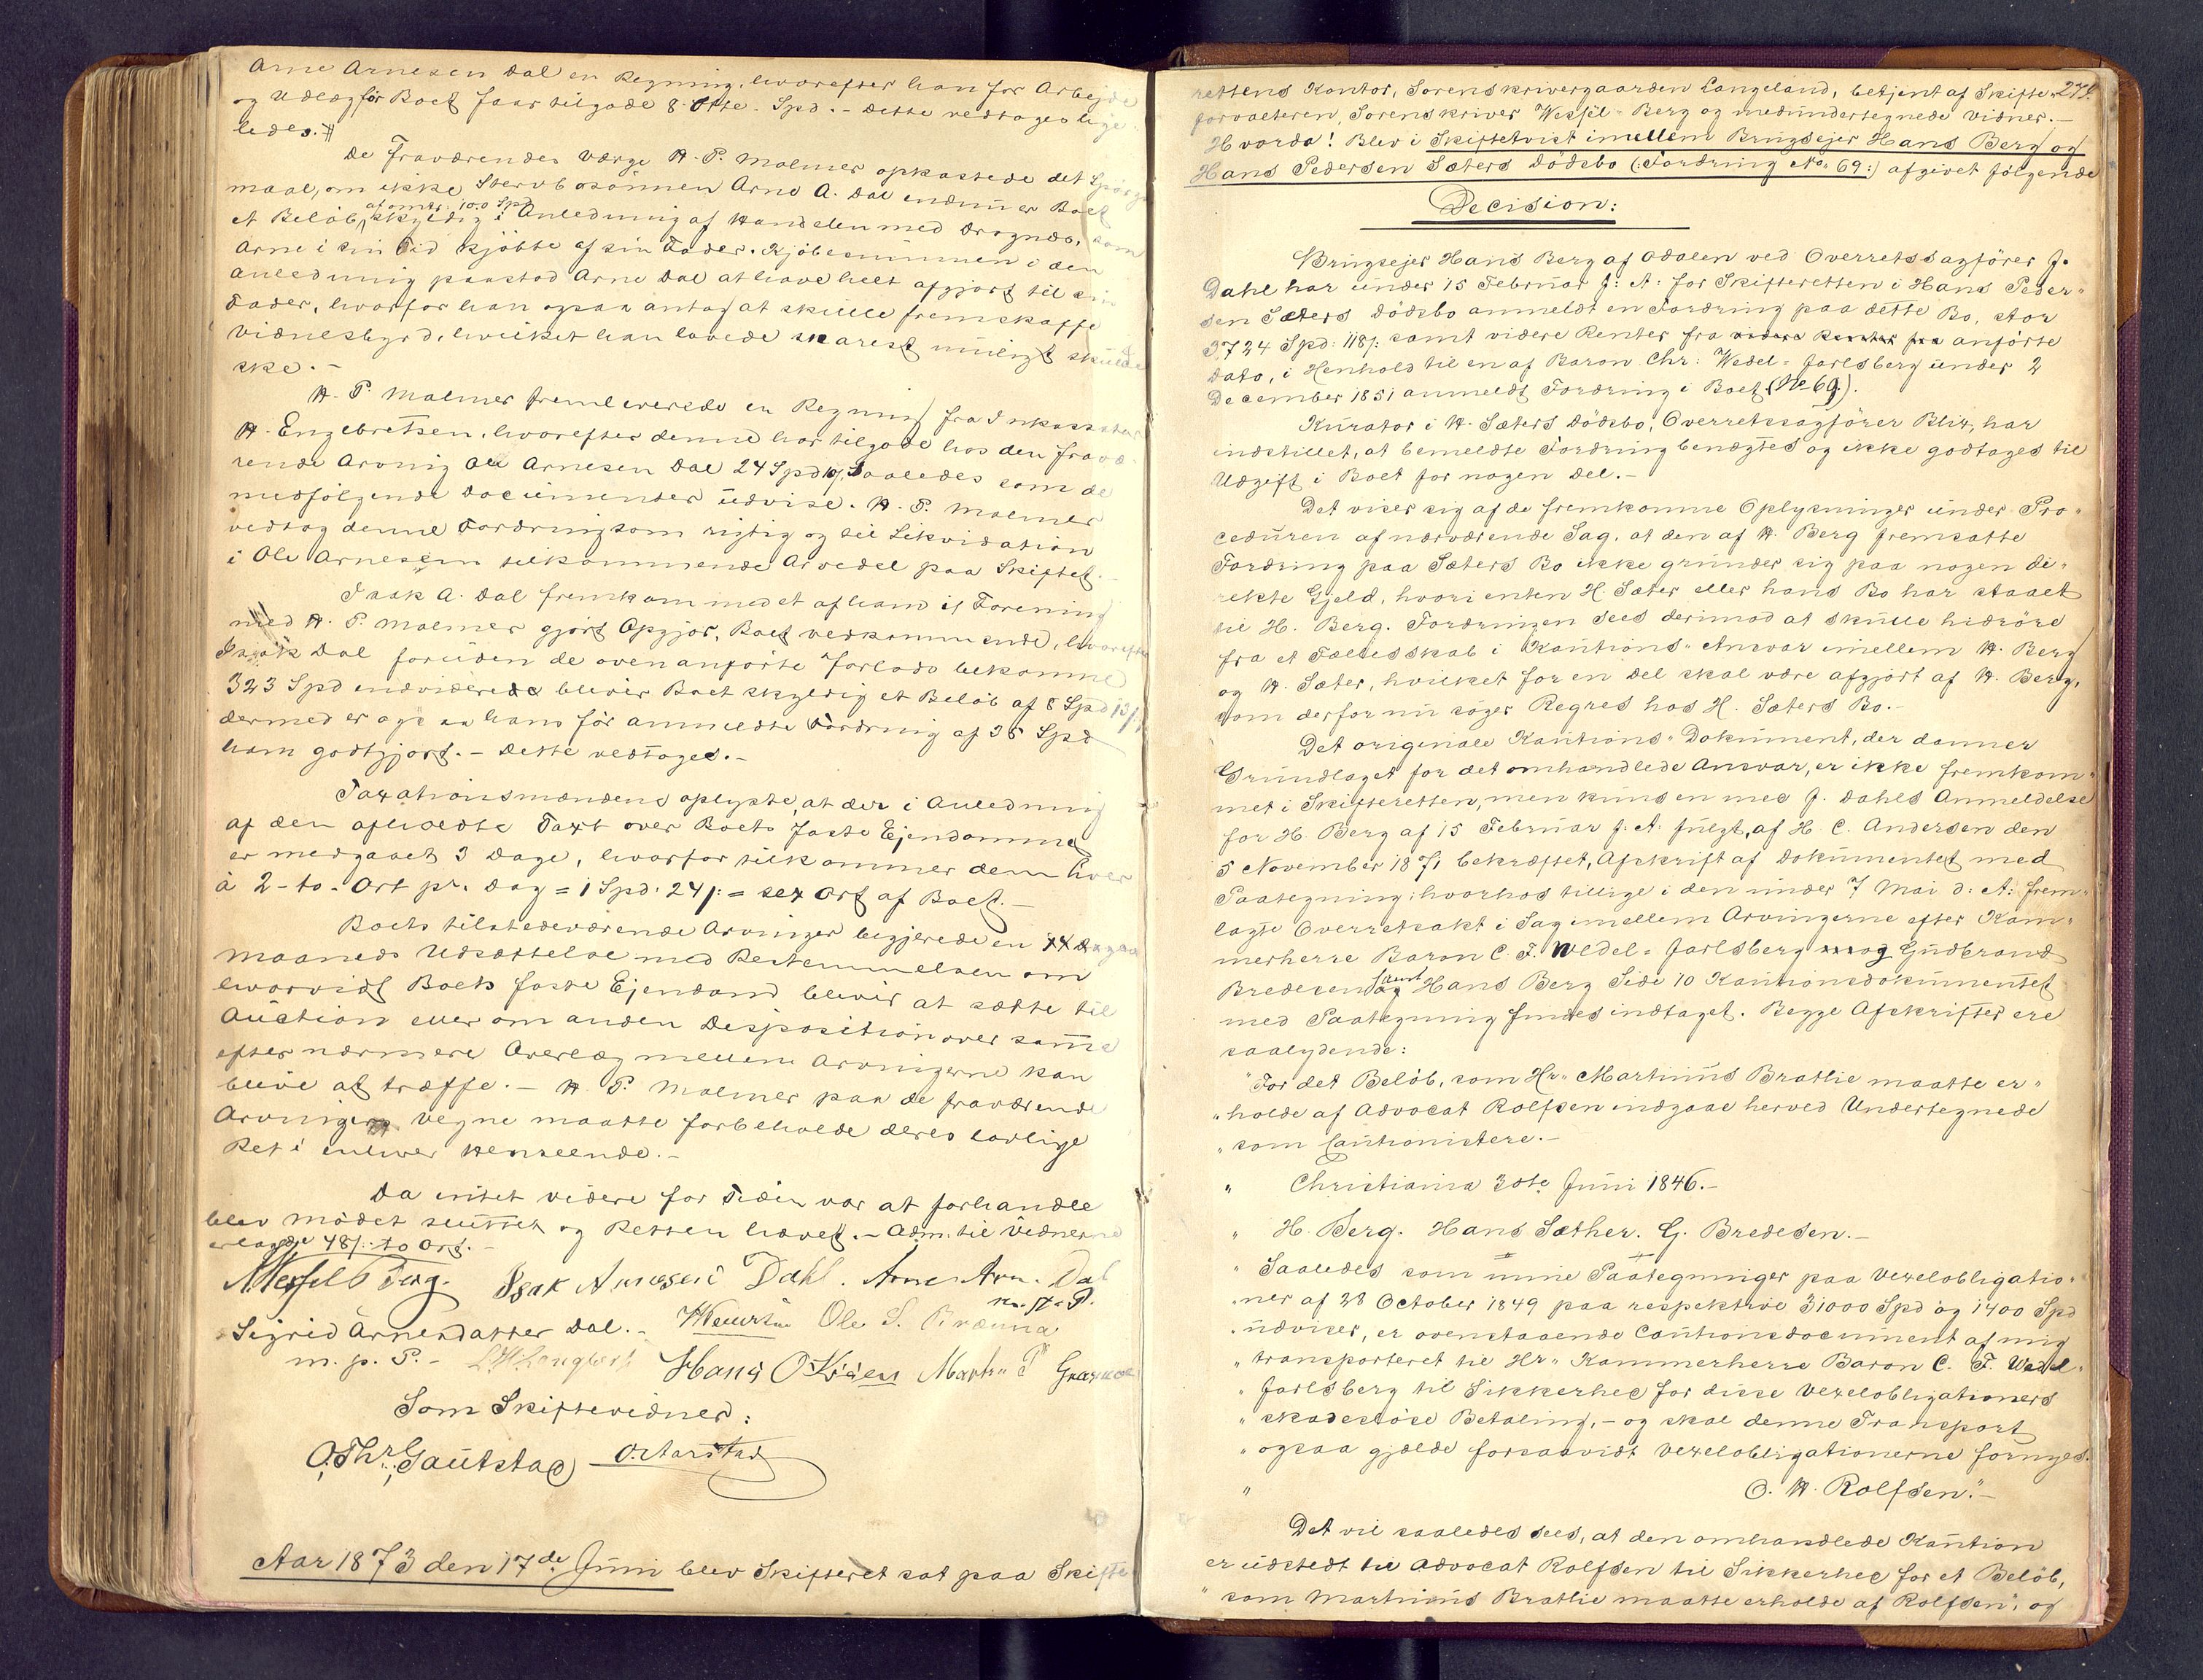 Arne Arnesen Dal en Regning, hvorefter han for Arbejde
og Udlæg for Boet faar tilgode 8 Otte Spd. – Dette vedtoges lige
ledes.
De Fraværendes Værge A. P. Malmer opkastede det Spörgs
maal, om ikke Stervbosönnen Arne A. Dal endnu er Boet
et Belöb, af omtr. 100 Spd skyldig i Anledning af Handelen med Drognes, som
Arne i sin Tid kjöbte af sin Fader. Kjöbesummen i den
Anledning paastod Arne Dal at have helt afgjort til sin
Fader, hvorfor han ogsaa antog at skulle fremskaffe
Vidnesbyrd, hvilket han lovede snarest muligt skulde
ske. –
A. P. Malmer fremleverede en Regning fra Inkassator
A. Engebretsen, hvorefter denne har tilgode hos den fravæ-
rende Arving Ole Arnesen Dal 24 Spd saaledes som de
medfölgende Documenter udvise. A. P. Malmer
vedtog denne Fordring som rigtig og til Likvidation
i Ole Arnesens tilkommende Arvedel paa Skiftet. –
Isak A. Dal fremkom med et af ham i Forening
med A. P. Malmer gjort Opgjör, Boet vedkommende, hvorefter
Isak Dal foruden de ovenanförte Forlods bekomme
323 Spd endvidere blevir Boet skyldig et Belöb af 8 Spd 13/:
dermed er ogsaa hans för anmeldte Fordring af 35 Spd
ham godtgjort. – Dette vedtoges. –
Taxationsmændene oplyste, at der i Anledning
af den afholdte Taxt over Boets faste Ejendomme
er medgaaet 3 Dage, hvorfor tilkommer dem hver
à 2 – to – Ort pr. Dag = 1 Spd. 24/: = sex Ort af Boet. –
Boets tilstedeværende Arvinger begjerede en
Maaneds Udsættelse med Bestemmelsen om
hvorvidt Boets faste Ejendom blevir at sætte til
Auction eller om anden Desposition over samme
efter nærmere Overlæg mellem Arvingerne kan
blive at træffe. – A. P. Malmer paa de fraværende
Arvingers Vegne maatte forbeholde deres lovlige
Ret i enhver Henseende. –
Da intet videre for Tiden var at forhandle
blev Mödet sluttet og Retten hævet. – Adm. til Vidnerne
erlagde 48/: to Ort. –
Wessel Berg. Isak Arnesen Dahl. Arne Arn. Dal
m. p. P.
Sigrid Arnesdatter Dal. – Ole S.
m. p. P. – Hans O Martin P
Som Skiftevidner:
O. Thr. Gautstad O. Aarstad
Aar 1873 den 17de Juni blev Skifteret sat paa Skifte
rettens Kontor, Sorenskrivergaarden Langeland, betjent af Skifte-
forvalteren, Sorenskriver Wessel-Berg og medundertegnede Vidner. –
Hvorda! Blev i Skiftetvist imellem Brugsejer Hans Berg og
Hans Pedersen Sæters Dödsbo (:Fordring No. 69:) afgivet fölgende
Decision:
Brugsejer Hans Berg af Odalen ved Overretssagförer J.
Dahl har under 15 Februar f: A: for Skifteretten i Hans Peder-
sen Sæters Dödsbo anmeldt en Fordring paa dette Bo, stor
3,724 Spd: 118/: samt videre Renter fra videre Renter fra anförte
Dato, i Henhold til en af Baron Chr: Wedel-Jarlsberg under 2
December 1851 anmeldt Fordring i Boet (No 69.).
Kurator i H. Sæters Dödsbo, Overretssagförer Blix, har
indstillet, at bemeldte Fordring benægtes og ikke godtages til
Udgift i Boet for nogen Del. –
Det viser sig af de fremkomne Oplysninger under Pro-
ceduren af nærværende Sag, at den af H. Berg fremsatte
Fordring paa Sæters Bo ikke grunder sig paa nogen di-
rekte Gjeld, hvori enten H. Sæter eller hans Bo har staaet
til H. Berg. Fordringen sees derimod at skulle hidröre
fra et Fællesskab i Kautions-Ansvar imellem H. Berg
og H. Sæter, hvilket for en Del skal være afgjort af H. Berg,
som derfor nu söger Regres hos H. Sæters Bo. –
Det originale Kautions-Dokument, der danner
Grundlaget for det omhandlede Ansvar, er ikke fremkom-
met i Skifteretten, men kuns en med J. Dahls Anmeldelse
for H. Berg af 15 Februar f: A: fulgt, af H. C. Andersen den
5 November 1871 bekræftet, Afskrift af Dokumentet med
Paategning; hvorhos tillige i den under 7 Mai d: A: frem-
lagte Overretsakt i Sag imellem Arvingerne efter Kam-
merherre Baron C. F. Wedel-Jarlsberg og Gudbrand
Bredesen samt Hans Berg Side 10 Kautionsdokumentet
med Paategning findes indtaget. Begge Afskrifter ere
saalydende:
"For det Belöb, som Hr. Martinus Bratlie maatte er-
"holde af Advocat Rolfsen indgaae herved Undertegnede
"som Cautionistere. –
" Christiania 30te Juni 1846. –
" H. Berg. Hans Sæther. G. Bredesen. –
"Saaledes som mine Paategninger paa Vexelobligatio-
"ner af 28 October 1849 paa respektive 31000 Spd og 1400 Spd
"udviser, er ovenstaaende Cautionsdocument af mig
"transporteret til Hr. Kammerherre Baron C. F. Wedel-
"Jarlsberg til Sikkerhed for disse Vexelobligationers
"skadeslöse Betaling, – og skal denne Transport
"ogsaa gjælde forsaavidt Vexelobligationerne fornyes.
" O. A. Rolfsen". –
Det vil saaledes sees, at den omhandlede Kaution
er udstedt til Advocat Rolfsen til Sikkerhed for et Belöb,
"som Martinus Bratlie maatte erholde af Rolfsen", og